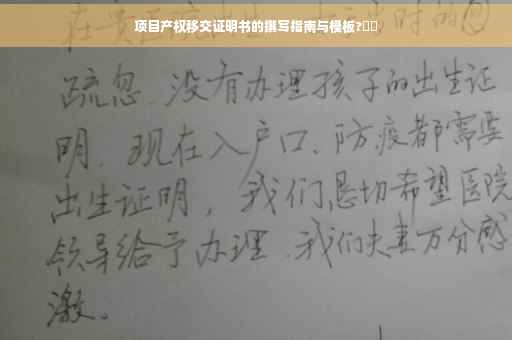 项目产权移交证明书的撰写指南与模板?
在贵医院出生,由于当时的
疏忽、没有办理孩子的出生证
明、现在入户口、防疫都需要
出生证明,我们恳切希望医院
领导给予办理、我们夫妻万分感
激。